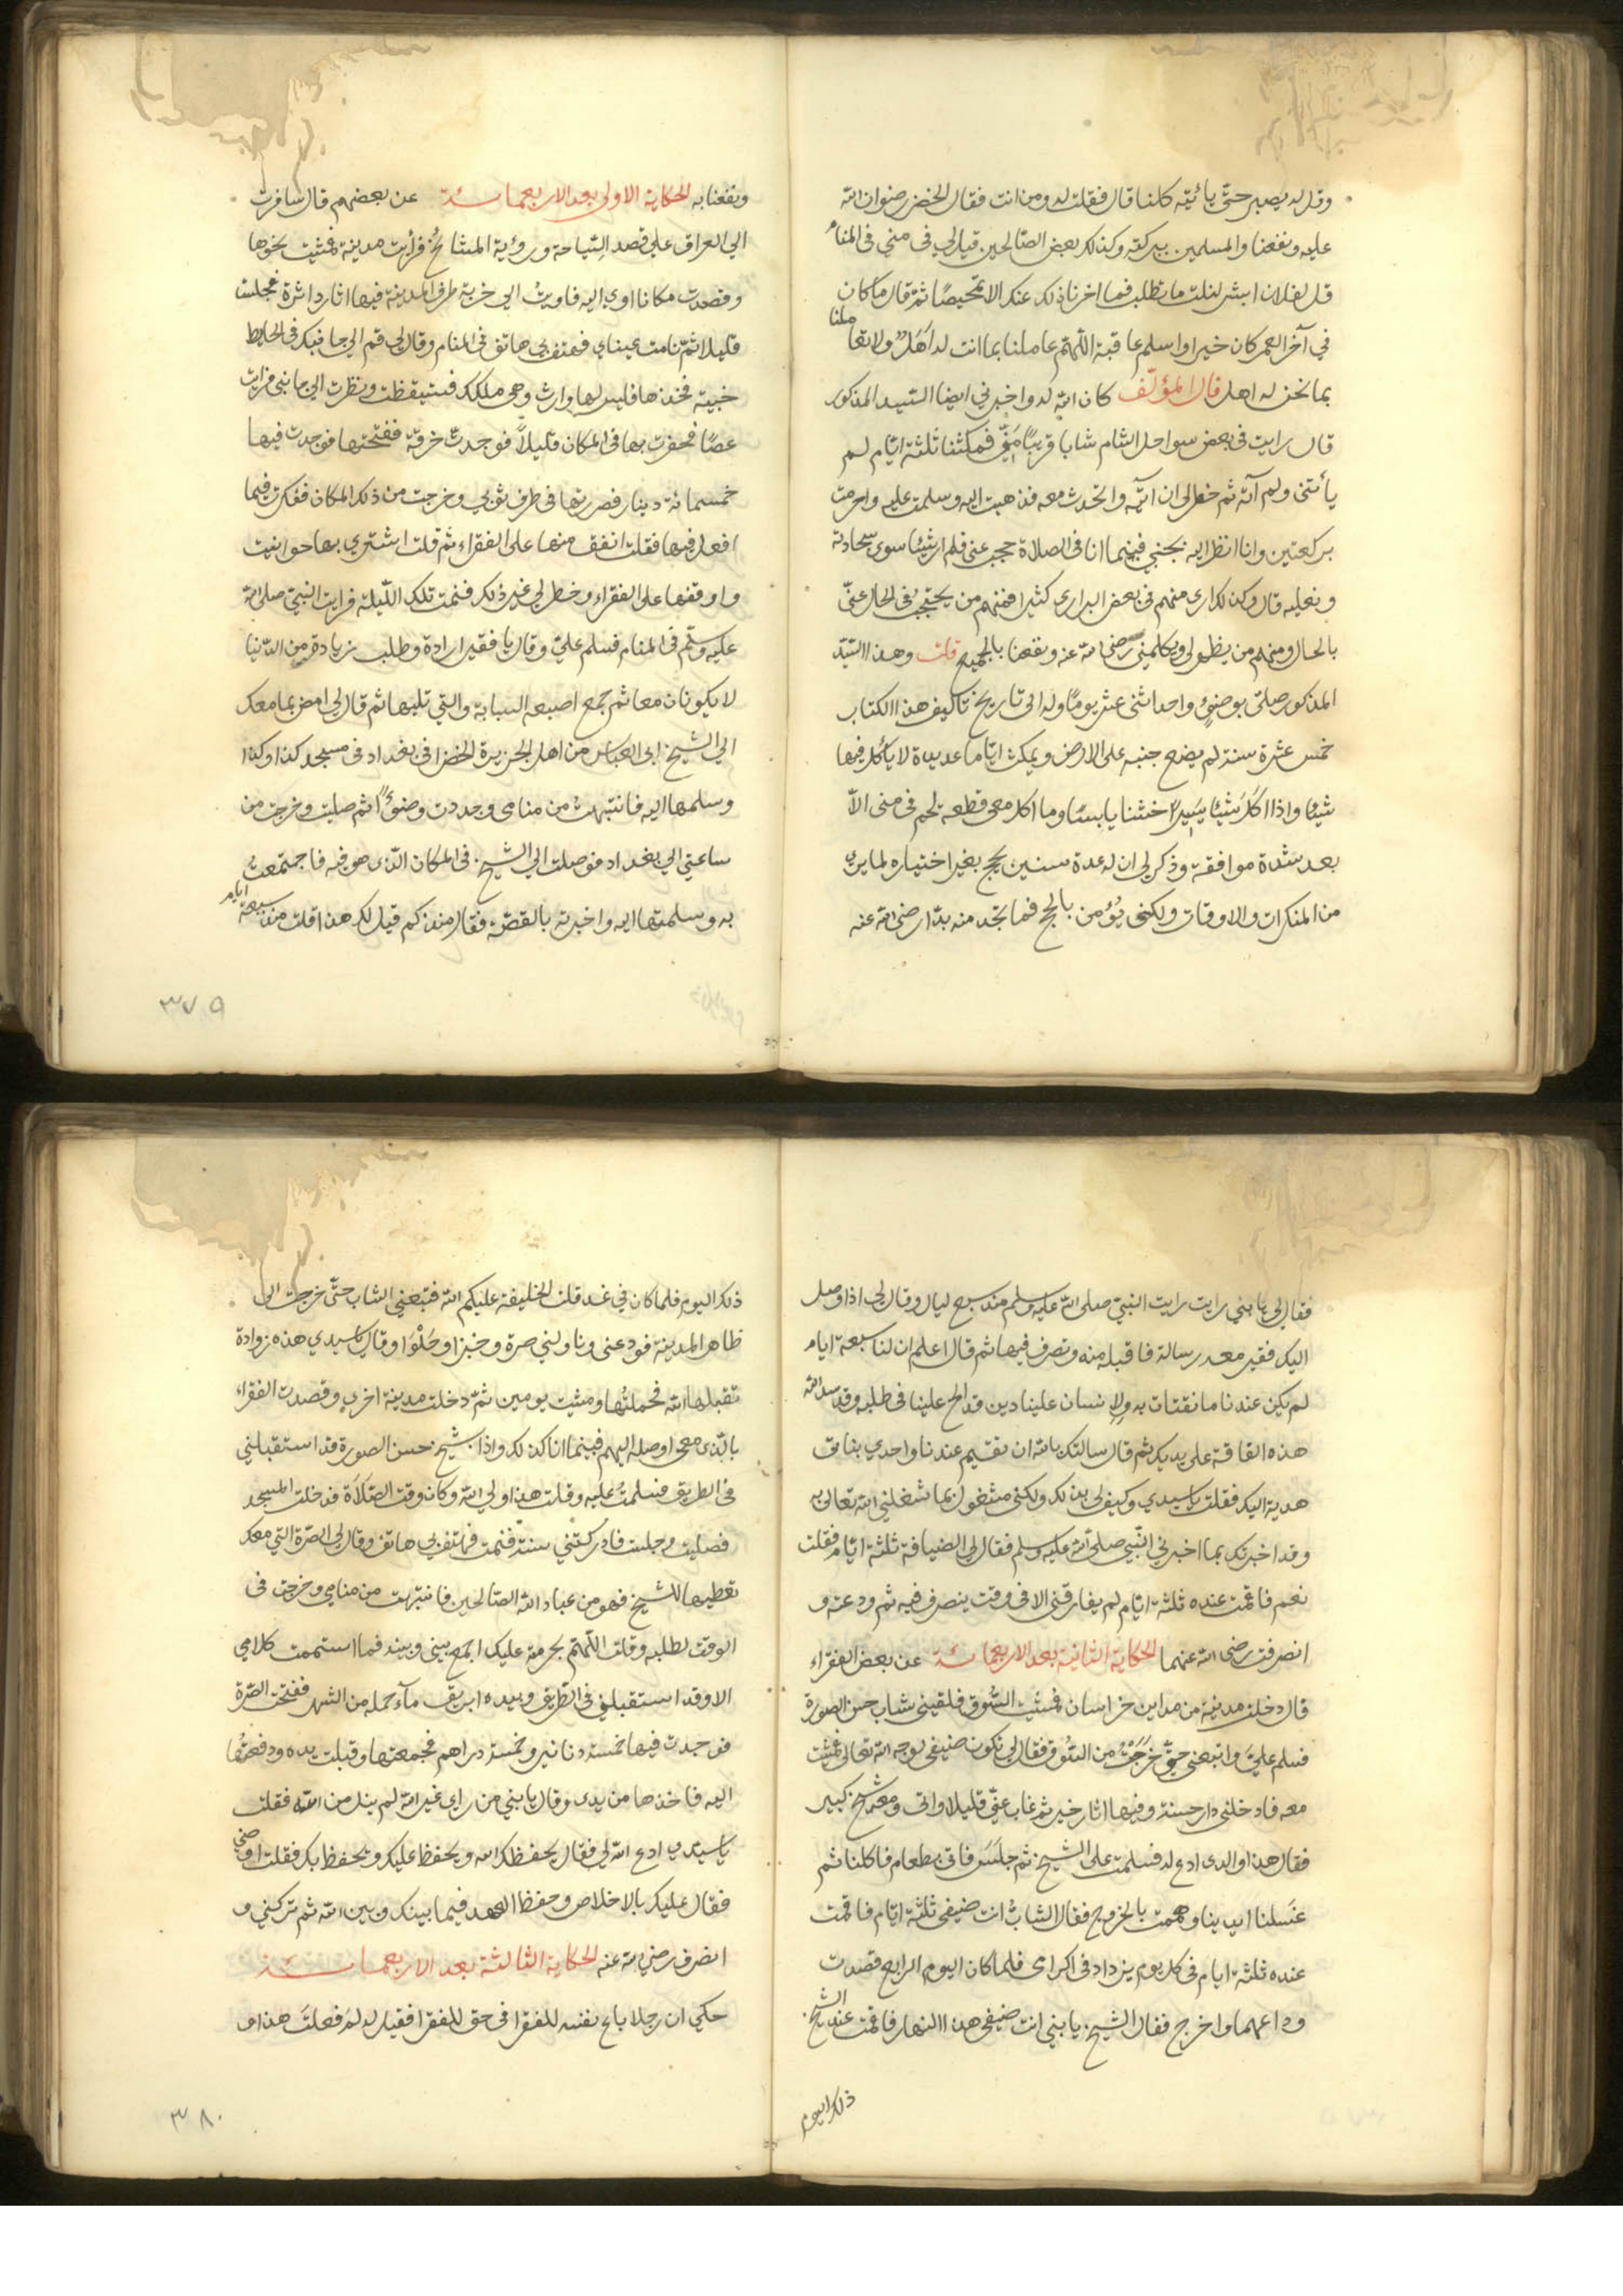 وقل له يصبر حتى يأتيه كلنا قال فقلت له ومن انت فقال الخضر رضوان الله
عليه ونفعنا والمسلمين ببركته وكذلك بعض الصالحين قيل لي في منى في المنام
قل لفلان ابشر لنلت ما تطلب فما اخرنا ذلك عنك الا تمحيصا ثم قال ما كان
في آخر العمر كان خيرا واسلم عاقبة اللهم عاملنا بما انت له اهل ولا تعاملنا
بما نحن له اهل قال المؤلف كان الله له واخبرني ايضا السيد المذكور
قال رايت في بعض سواحل الشام شابا قريبا مني فمكثنا ثلثة ايام لم
يأتني ولم آته ثم خطر لي ان آتيه واتحدث معه فذهبت اليه وسلمت عليه واحرمت
بركعتين وانا انظر اليه بجنبي فبينما انا في الصلاة حجب عني فلم ار شيئا سوى سجادته
ونعليه قال وكذلك ارى منهم في بعض البراري كثيرا فمنهم من يحتجب في الحال عني
بالحال ومنهم من يظهر لي ويكلمني رضي الله عنه ونفعنا بالجميع قلت وهذا السيد
المذكور صلى بوضوء واحد اثنى عشر يوما وله الى تاريخ تأليف هذا الكتاب
خمس عشرة سنة لم يضع جنبه على الارض ويمكث اياما عديدة لا يأكل فيها
شيئا واذا اكل شيئا يسيرا خشنا يابسا وما اكل معي قطعة لحم في منى الا
بعد شدة موافقة وذكر لي ان له عدة سنين يحج بغير اختياره لما يرى
من المنكرات والاوقات ولكني يؤمر بالحج فما تجد منه بدا رضي الله عنه
ونفعنا به الحكاية الاولى بعد الاربعمائة عن بعضهم قال سافرت
الي العراق على قصد السياحة ورؤية المشايخ فرأيت مدينة فمشيت نحوها
وقصدت مكانا اوي اليه فاويت الي خربة طرف المدينة فيها اثار داثرة فجلست
قليلا ثم نامت عيناي فهتف بي هاتف في المنام وقال لي قم الي جانبك في الحايط
خبية فخذها فليس لها وارث وهي ملكك فستيقظت ونظرت الي جانبي فرايت
عصا فحفرت بها في المكان قليلا فوجدت خرقة ففتحتها فوجدت فيها
خمسمائة دينار فصررتها في طرف ثوبي وخرجت من ذلك المكان ففكرت فيما
افعل فيها فقلت انفق منها على الفقراء ثم قلت اشتري بها حوانيت
واوقفها على الفقراء وخطر لي غير ذلك فنمت تلك الليلة فرايت النبي صلى الله
عليه وسلم في المنام فسلم علي وقال يا فقير ارادة وطلب زيادة من الدنيا
لا يكونان معا ثم جمع اصبعه السبابة والتي تليها ثم قال لي امض بما معك
الي الشيخ ابي العباس من اهل الجزيرة الخضرا في بغداد في مسجد كذا وكذا
وسلمها اليه فانتبهت من منامي وجددت وضوءا ثم صليت وخرجت من
ساعتي الي بغداد فوصلت الي الشيخ في المكان الذي هو فيه فاجتمعت
به وسلمتها اليه واخبرته بالقصة فقال منذ كم قيل لك هذا قلت منذ سبعة ايام
٣٧٩
فقال لي يا بني رايت رايت النبي صلى الله عليه وسلم منذ سبع ليال وقال لي اذا وصل
اليك فقير معه رسالة فاقبل منه وتصرف فيها ثم قال اعلم ان لنا سبعة ايام
لم يكن عندنا ما نقتات به ولانسان علينا دين قد الح علينا في طلبه وقد سد الله
هذه الفاقة على يديك ثم قال سالتك بالله ان تقيم عندنا واحدي بناتي
هدية اليك فقلت يا سيدي وكيف لي بذلك ولكني مشغول بما شغلني الله تعالى به
وقد اخبرتك بما اخبرني النبي صلى الله عليه وسلم فقال لي الضيافة ثلثة ايام فقلت
نعم فاقمت عنده ثلثة ايام لم يفارقني الا في وقت ينصرف فيه ثم ودعته و
انصرفت رضي الله عنهما الحكاية الثانية بعد الاربعمائة عن بعض الفقراء
قال دخلت مدينة من مداين خراسان فمشيت السوق فلقيني شاب حسن الصورة
فسلم علي واتبعني حتى خرجت من السوق فقال لي تكون ضيفي لوجه الله تعالى فمشيت
معه فادخلني دار حسنة وفيها اثار خير ثم غاب عني قليلا واتى ومعه شيخ كبير
فقال هذا والدي ادع له فسلمت على الشيخ ثم جلس فاتى بطعام فاكلنا ثم
غسلنا ايدينا وهممت بالخروج فقال الشاب انت ضيفي ثلثة ايام فاقمت
عنده ثلثة ايام في كل يوم يزداد في اكرامي فلما كان اليوم الرابع قصدت
وداعهما واخرج فقال الشيخ يا بني انت ضيفي هذا النهار فاقمت عند الشيخ
ذلك اليوم
ذلك اليوم فلما كان في غد قلت الخليفة عليكم الله فتبعني الشاب حتى خرجت الى
ظاهر المدينة فودعني وناولني صرة وخبزا وحلوا وقال يا سيدي هذه زوادة
تقبلها الله فحملتها ومشيت يومين ثم دخلت مدينة اخرى وقصدت الفقراء
بالذي معي اوصله اليهم فبينما انا كذلك واذا بشيخ حسن الصورة قد استقبلني
في الطريق فسلمت عليه وقلت هذا ولي الله وكان وقت الصلاة فدخلت المسجد
فصليت وجلست فادركتني سنة فنمت فهتف بي هاتف وقال لي الصرة التي معك
تعطيها للشيخ فهو من عباد الله الصالحين فانتبهت من منامي وخرجت في
الوقت لطلبه وقلت اللهم بحرمته عليك اجمع بيني وبينه فما استممت كلامي
الا وقد استقبلني في الطريق وبيده ابريق ماء حمله من النهر ففتحت الصرة
فوجدت فيها خمسة دنانير وخمسة دراهم فجمعتها وقبلت يده ودفعتها
اليه فاخذها من يدي وقال يا بني من راى غير الله لم ينل من الله فقلت
يا سيدي ادع الله لي فقال يحفظك الله ويحفظ عليك ويحفظ بك فقلت اوصني
فقال عليك بالاخلاص وحفظ العهد فيما بينك وبين الله ثم تركني و
انصرف رضي الله عنه الحكاية الثالثة بعد الاربعمائة
حكي ان رجلا باع نفسه للفقرا في حق للفقرا فقيل له لم فعلت هذا
٣٨٠